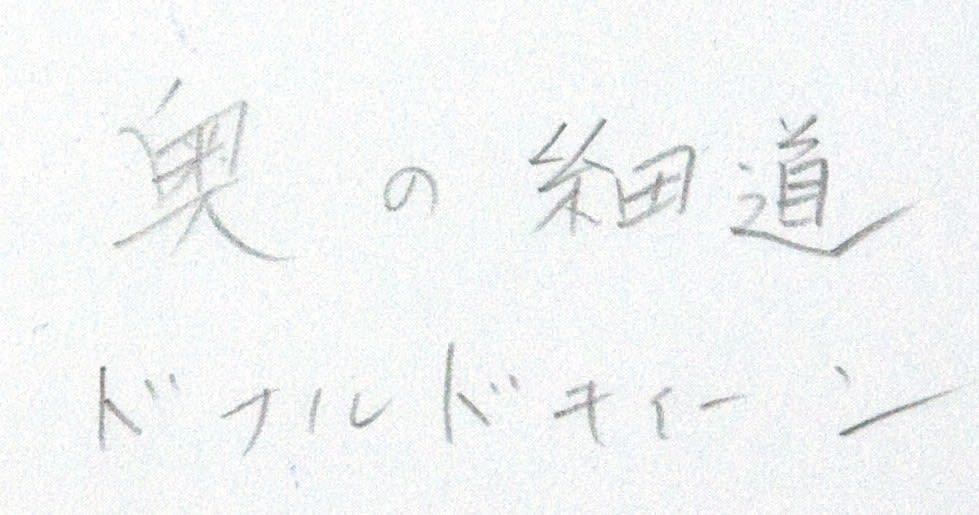 奥の細道
ドナルドキィーン